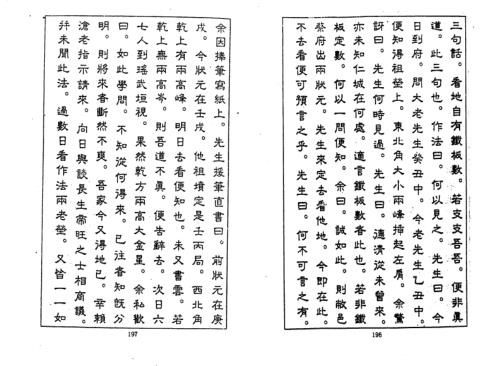 三句話。看地自有鐵板數。若支支吾吾。便非眞
道。此三句也。作法曰。何以見之。先生曰。今
日到府。問大老先生癸丑中。今老先生乙丑中。
便知得祖塋上。東北角大小兩峰插起左肩。余驚
訝曰。先生何時見過。先生曰。德清從未曾來。
亦未知仁城在何處。適言鐵板數者此也。若非鐵
板定數。何以一問便知。余曰。誠如此。則敝邑
蔡府出兩狀元。先生來定去看他地。今即在此。
不去看便可預言之乎。先生曰。何不可言之有。
196
余因捧筆寫紙上。先生援筆直書曰。前狀元在庚
戌。今狀元在壬戌。他祖墳定是壬丙局。西北角
乾上有兩高峰。明日去看便知也。末又書雲。若
乾上無兩高岑。則吾道不眞。便告辭去。次日六
七人到瑤武垣視。果然乾方兩高大金星。余私歎
曰。如此學問。不知從何得來。已往者知既分
明。則將來者斷然不爽。吾家今又得地已。幸賴
滄老指示請來。向日與談長生帝旺之士相商議。
幷未聞此法。過數日看作法兩老塋。又皆一一如
197